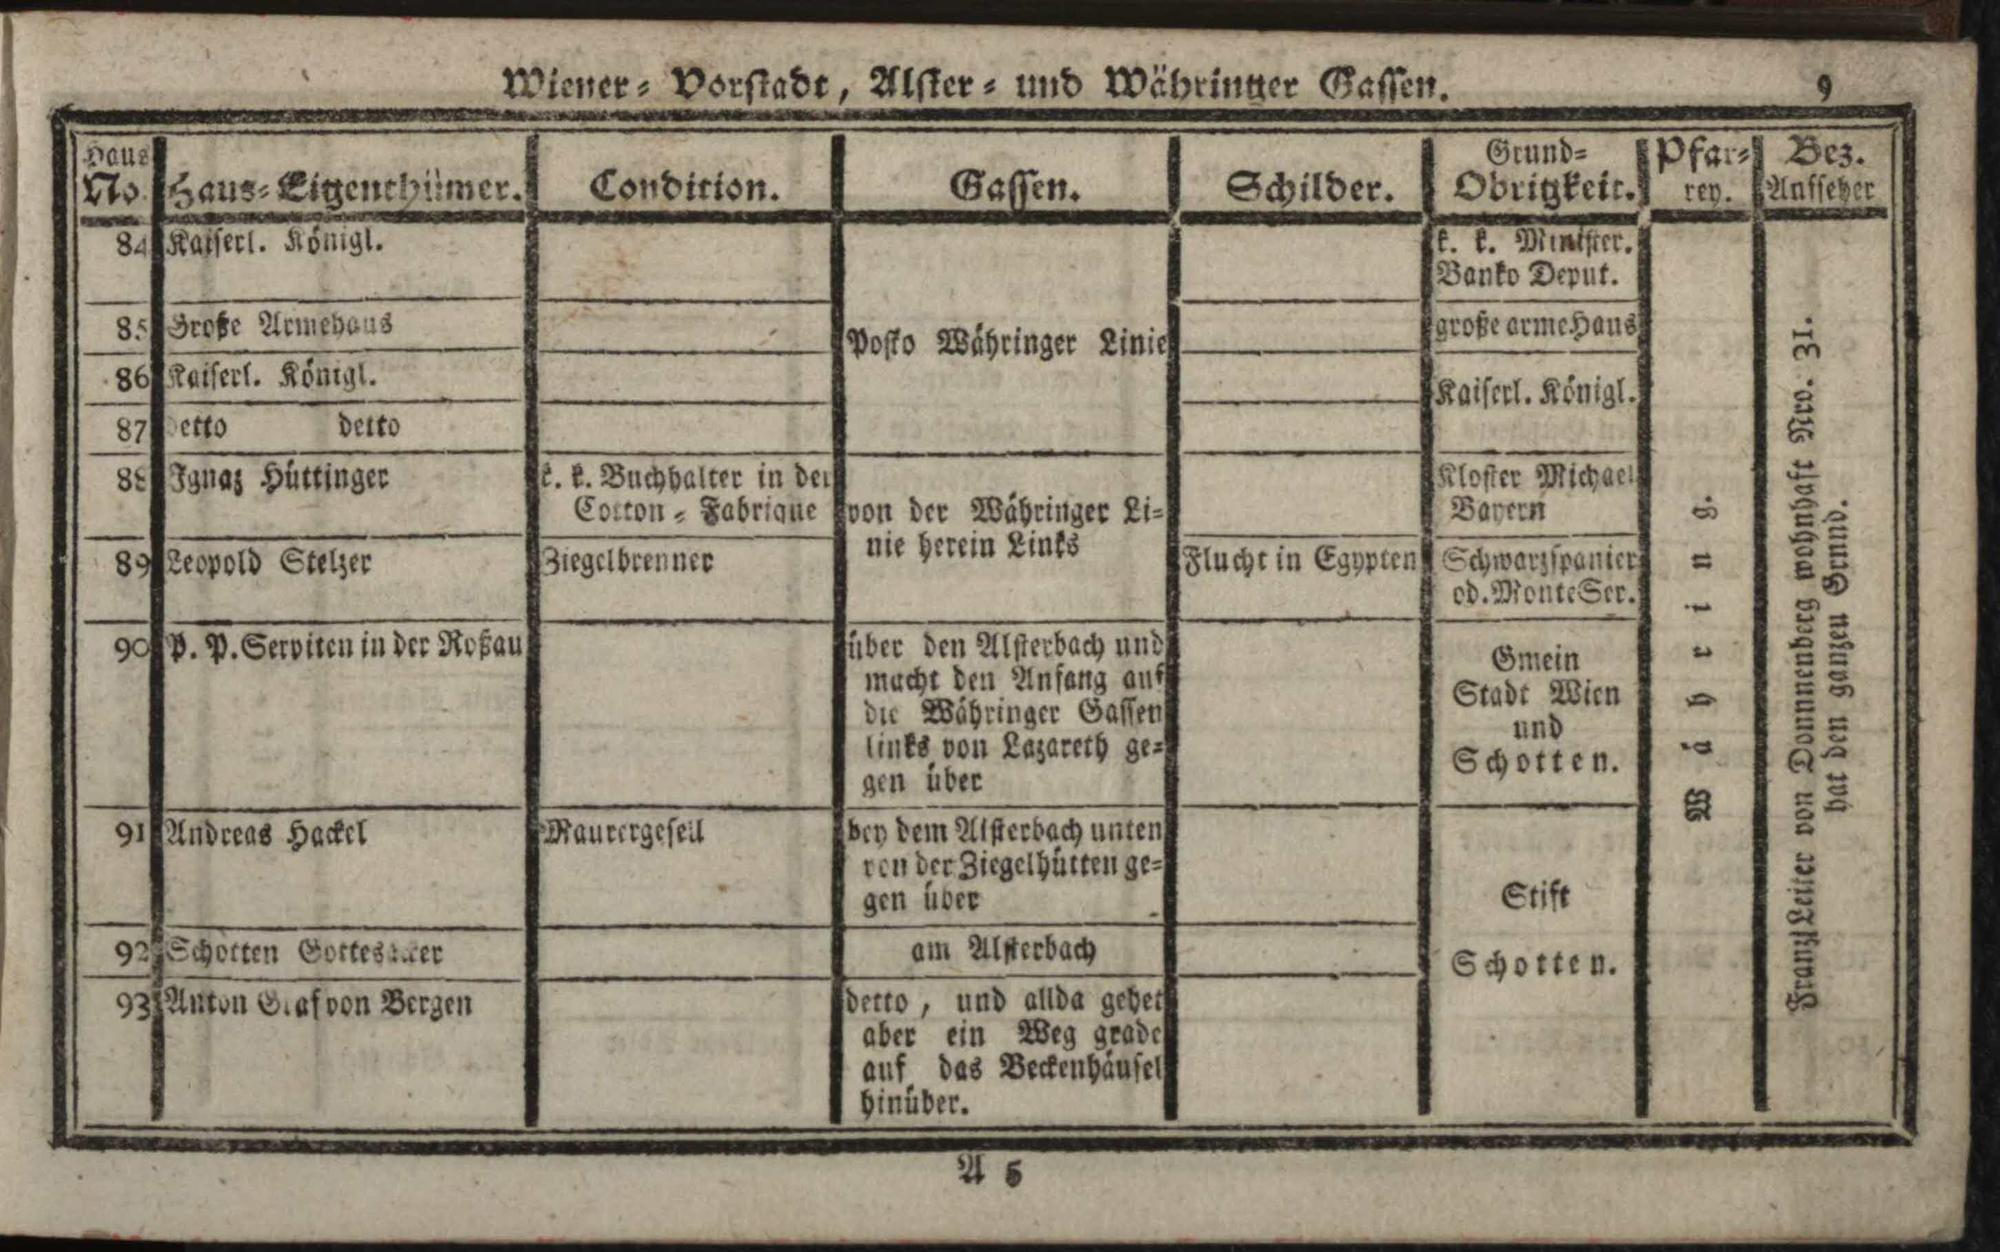 Wiener- Vorstadt, Alster- und Währinger Gassen. 9
Haus No.
Haus-Eigenthümer.
Condition.
Gassen.
Schilder.
Grund-
Obrigkeit.
Pfar-
rey.
Bez.
Aufseher
84 Kaiserl. Königl.
k. k. Minister.
Banko Deput.
85 Große Armehaus
große arme Haus
Posto Währinger Linie
86 Kaiserl. Königl.
Kaiserl. Königl.
87 detto detto
88 Ignaz Hüttinger
k. k. Buchhalter in der
Cotton-Fabrique
von der Währinger Li-
nie herein Links
Kloster Michael
Bayern
89 Leopold Stelzer
Ziegelbrenner
Flucht in Egypten
Schwarzspanier
od. Monte Ser.
90 P. P. Serviten in der Roßau
über den Alsterbach und
macht den Anfang auf
die Währinger Gassen
links von Lazareth ge-
gen über
Gmein
Stadt Wien
und
Schotten.
91 Andreas Hackel
Maurergesell
bey dem Alsterbach unten
von der Ziegelhütten ge-
gen über
Stift
Schotten.
92 Schotten
am Alsterbach
93 Anton Graf von Bergen
detto, und allda gehet
aber ein Weg grade
auf das Beckenhäusel
hinüber.
Währing.
Franz Leiter von Donnenberg wohnhaft Nro. 31.
hat den ganzen Grund.
A 5